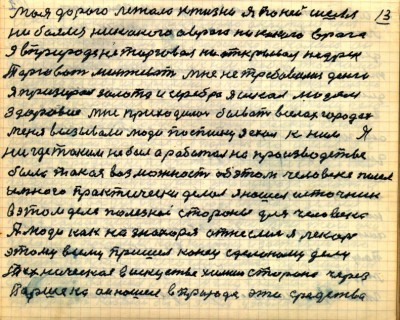 Моя дорога лежала к жизни Я по ней шел 13
не боялся никакого никакого врага
Я в природе не торговал не открывал недра
Торговать мне не требовались деньги
Я презирал золото и серебро Я искал людям
Здоровие мне приходилось бывать в селах городах
меня вызывали люди по списку Я ехал к ним Я
нигде таким не был а работал на производстве
была такая возможность об этом человеке писал
много практически делал Я нашел источник
в этом деле полезной стороны для человека
А люди как на знахаря отнеслись Я лекарь
этому всему пришел конец сделанному делу
Техническая в искусстве химии сторона через
Паршека он нашел в природе эти средства